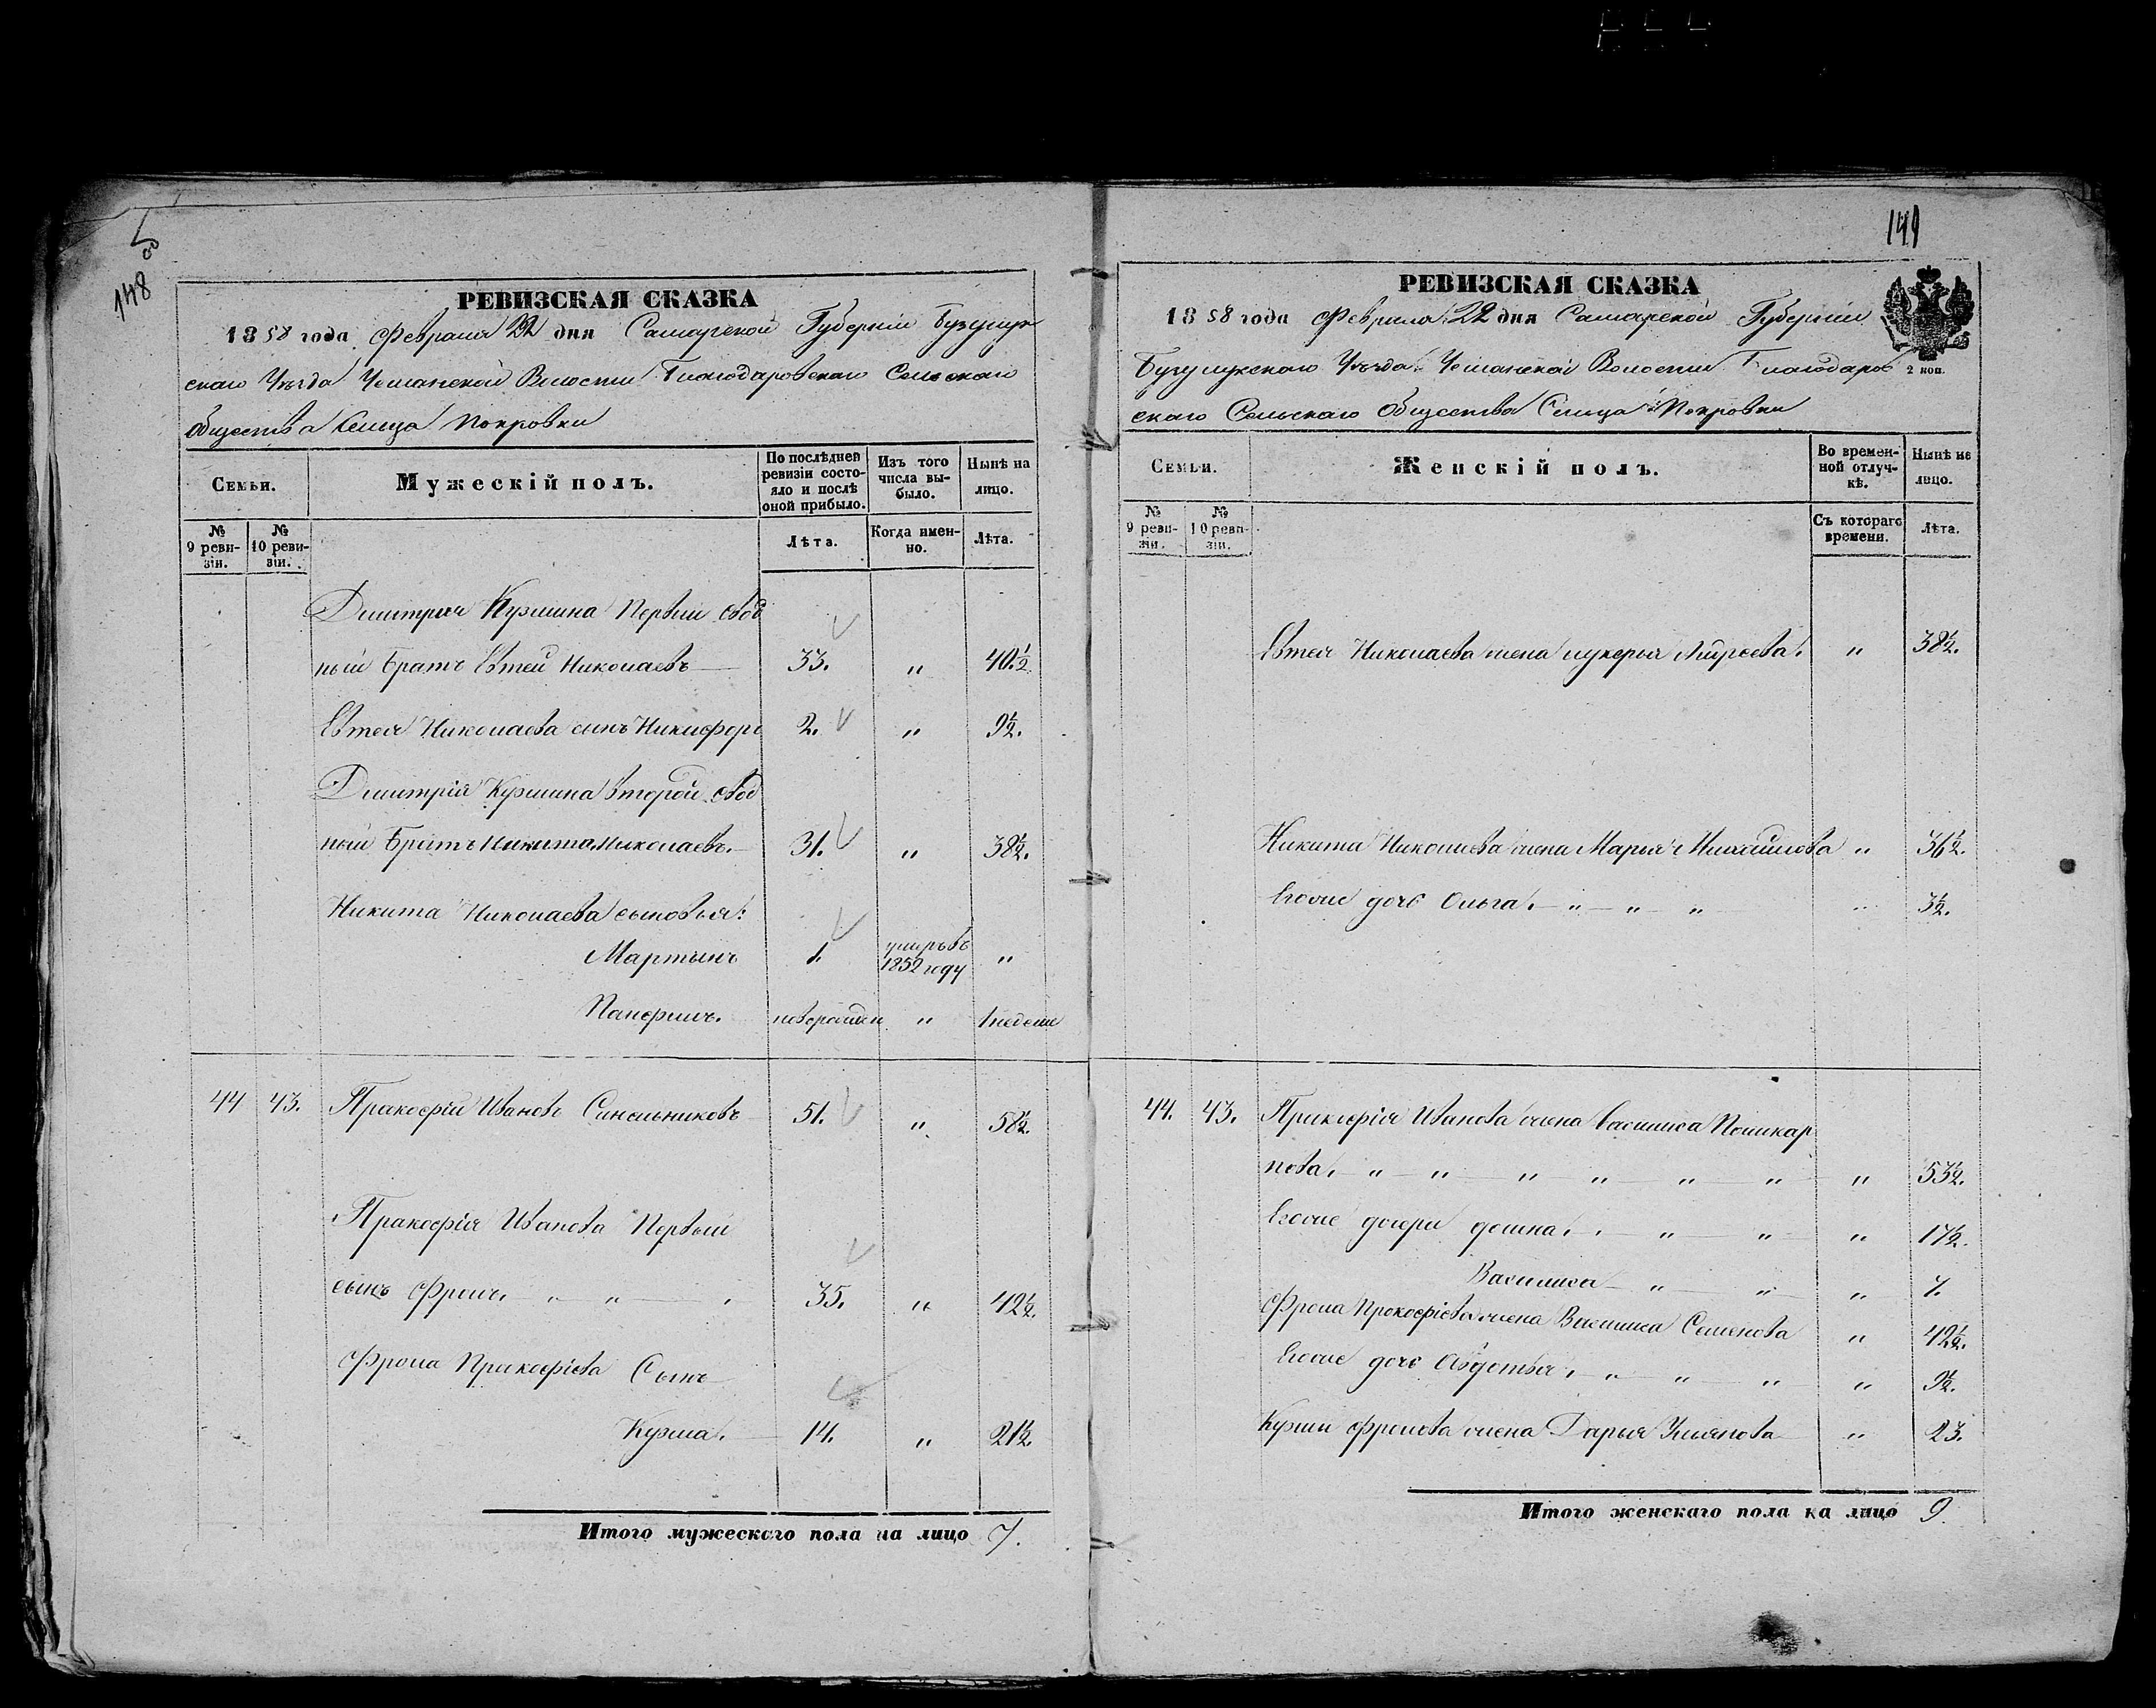 148
РЕВИЗСКАЯ СКАЗКА
1858 года Февраля 22 дня Самарской Губернiи Бузулук
скаго Уѣзда Чесланской Волости Благодаровскаго Сельскаго
Общества Сельца Покровки
Семьи.
Мужескiй полъ.
По послѣдней ревизiи состояло и послѣ оной прибыло.
Изъ того числа выбыло.
Нынѣ на лицо.
№ 9 ревизiи.
№ 10 ревизiи.
Лѣта.
Когда именно.
Лѣта.
Дмитрiя Кузмина Первый свод
ный братъ Евтей Николаевъ 33. " 40.½
Евтея Николаева сынъ Никифоръ 2. " 9½.
Дмитрiя Кузмина второй свод
ный братъ Никита Николаевъ. 31. " 38½.
Никита Николаева сыновья:
Мартынъ 1. умеръ въ 1852 году "
Панфилъ. новорожден " 1 недели
44 43. Пракофiй Ивановъ Синельниковъ 51. " 58½.
Пракофiя Иванова Первый
сынъ Фролъ. " " 35. " 42½.
Фрола Пракофiева Сынъ
Кузма. 14. " 21½.
Итого мужескаго пола на лицо 7.
149
РЕВИЗСКАЯ СКАЗКА
1858 года Февраля 22 дня Самарской Губернiи
Бузулукскаго Уѣзда Чесланской Волости Благодаров
2 коп.
скаго Сельскаго Общества Сельца Покровки
Семьи.
Женскiй полъ.
Во временной отлучкѣ.
Нынѣ на лицо.
№ 9 ревизiи.
№ 10 ревизiи.
Съ котораго времени.
Лѣта.
Евтея Николаева жена Лукерья " 38½.
Никита Николаева жена Марья Михайлова " 36½.
Егоже дочь Ольга. " " " " 3½.
44. 43. Пракофiя Иванова жена Василиса Поликар
пова. " " " " " " " 53½.
Егоже дочери Домна. " " " 17½.
Василиса " " " 7.
Фрола Прокофiева жена Василиса Семенова " 42½.
Егоже дочь Авдотья. " " " " 9½.
Кузмы Фролова жена Дарья Ульянова " 23.
Итого женскаго пола на лицо 9.